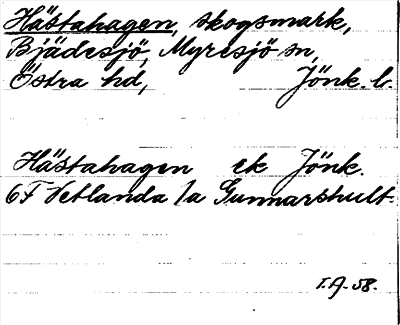 Hästahagen, skogsmark,
Bjädesjö, Myresjö sn,
Östra hd, Jönk. l.
Hästahagen ek Jönk.
6F Vetlanda 1a Gunnarshult.
I.A. 58.